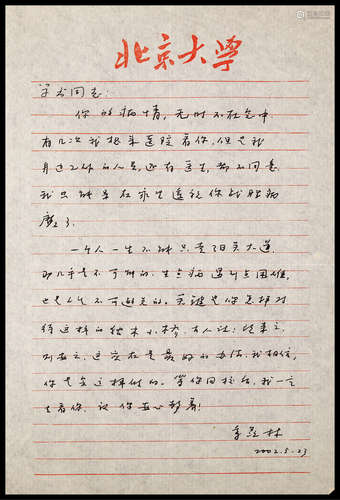 北京大学
同志:
你的病情,无时不在念中
有几次我想来医院看你,但是我
身边工作的人员,还有医生,都不同意
我只能坐在家里遥祝你战胜病
魔了。
一个人一生不能只走阳关大道,
那几乎是不可能的。生点病遇到点困难,
也是不可避免的。关键是你怎样对
待这样的独木小桥。古人说:既来之,
则安之,这实在是最好的办法。我相信,
你是会这样做的。等你回校后,我一定
去看你。祝你安心静养!
季羡林
2002.5.23